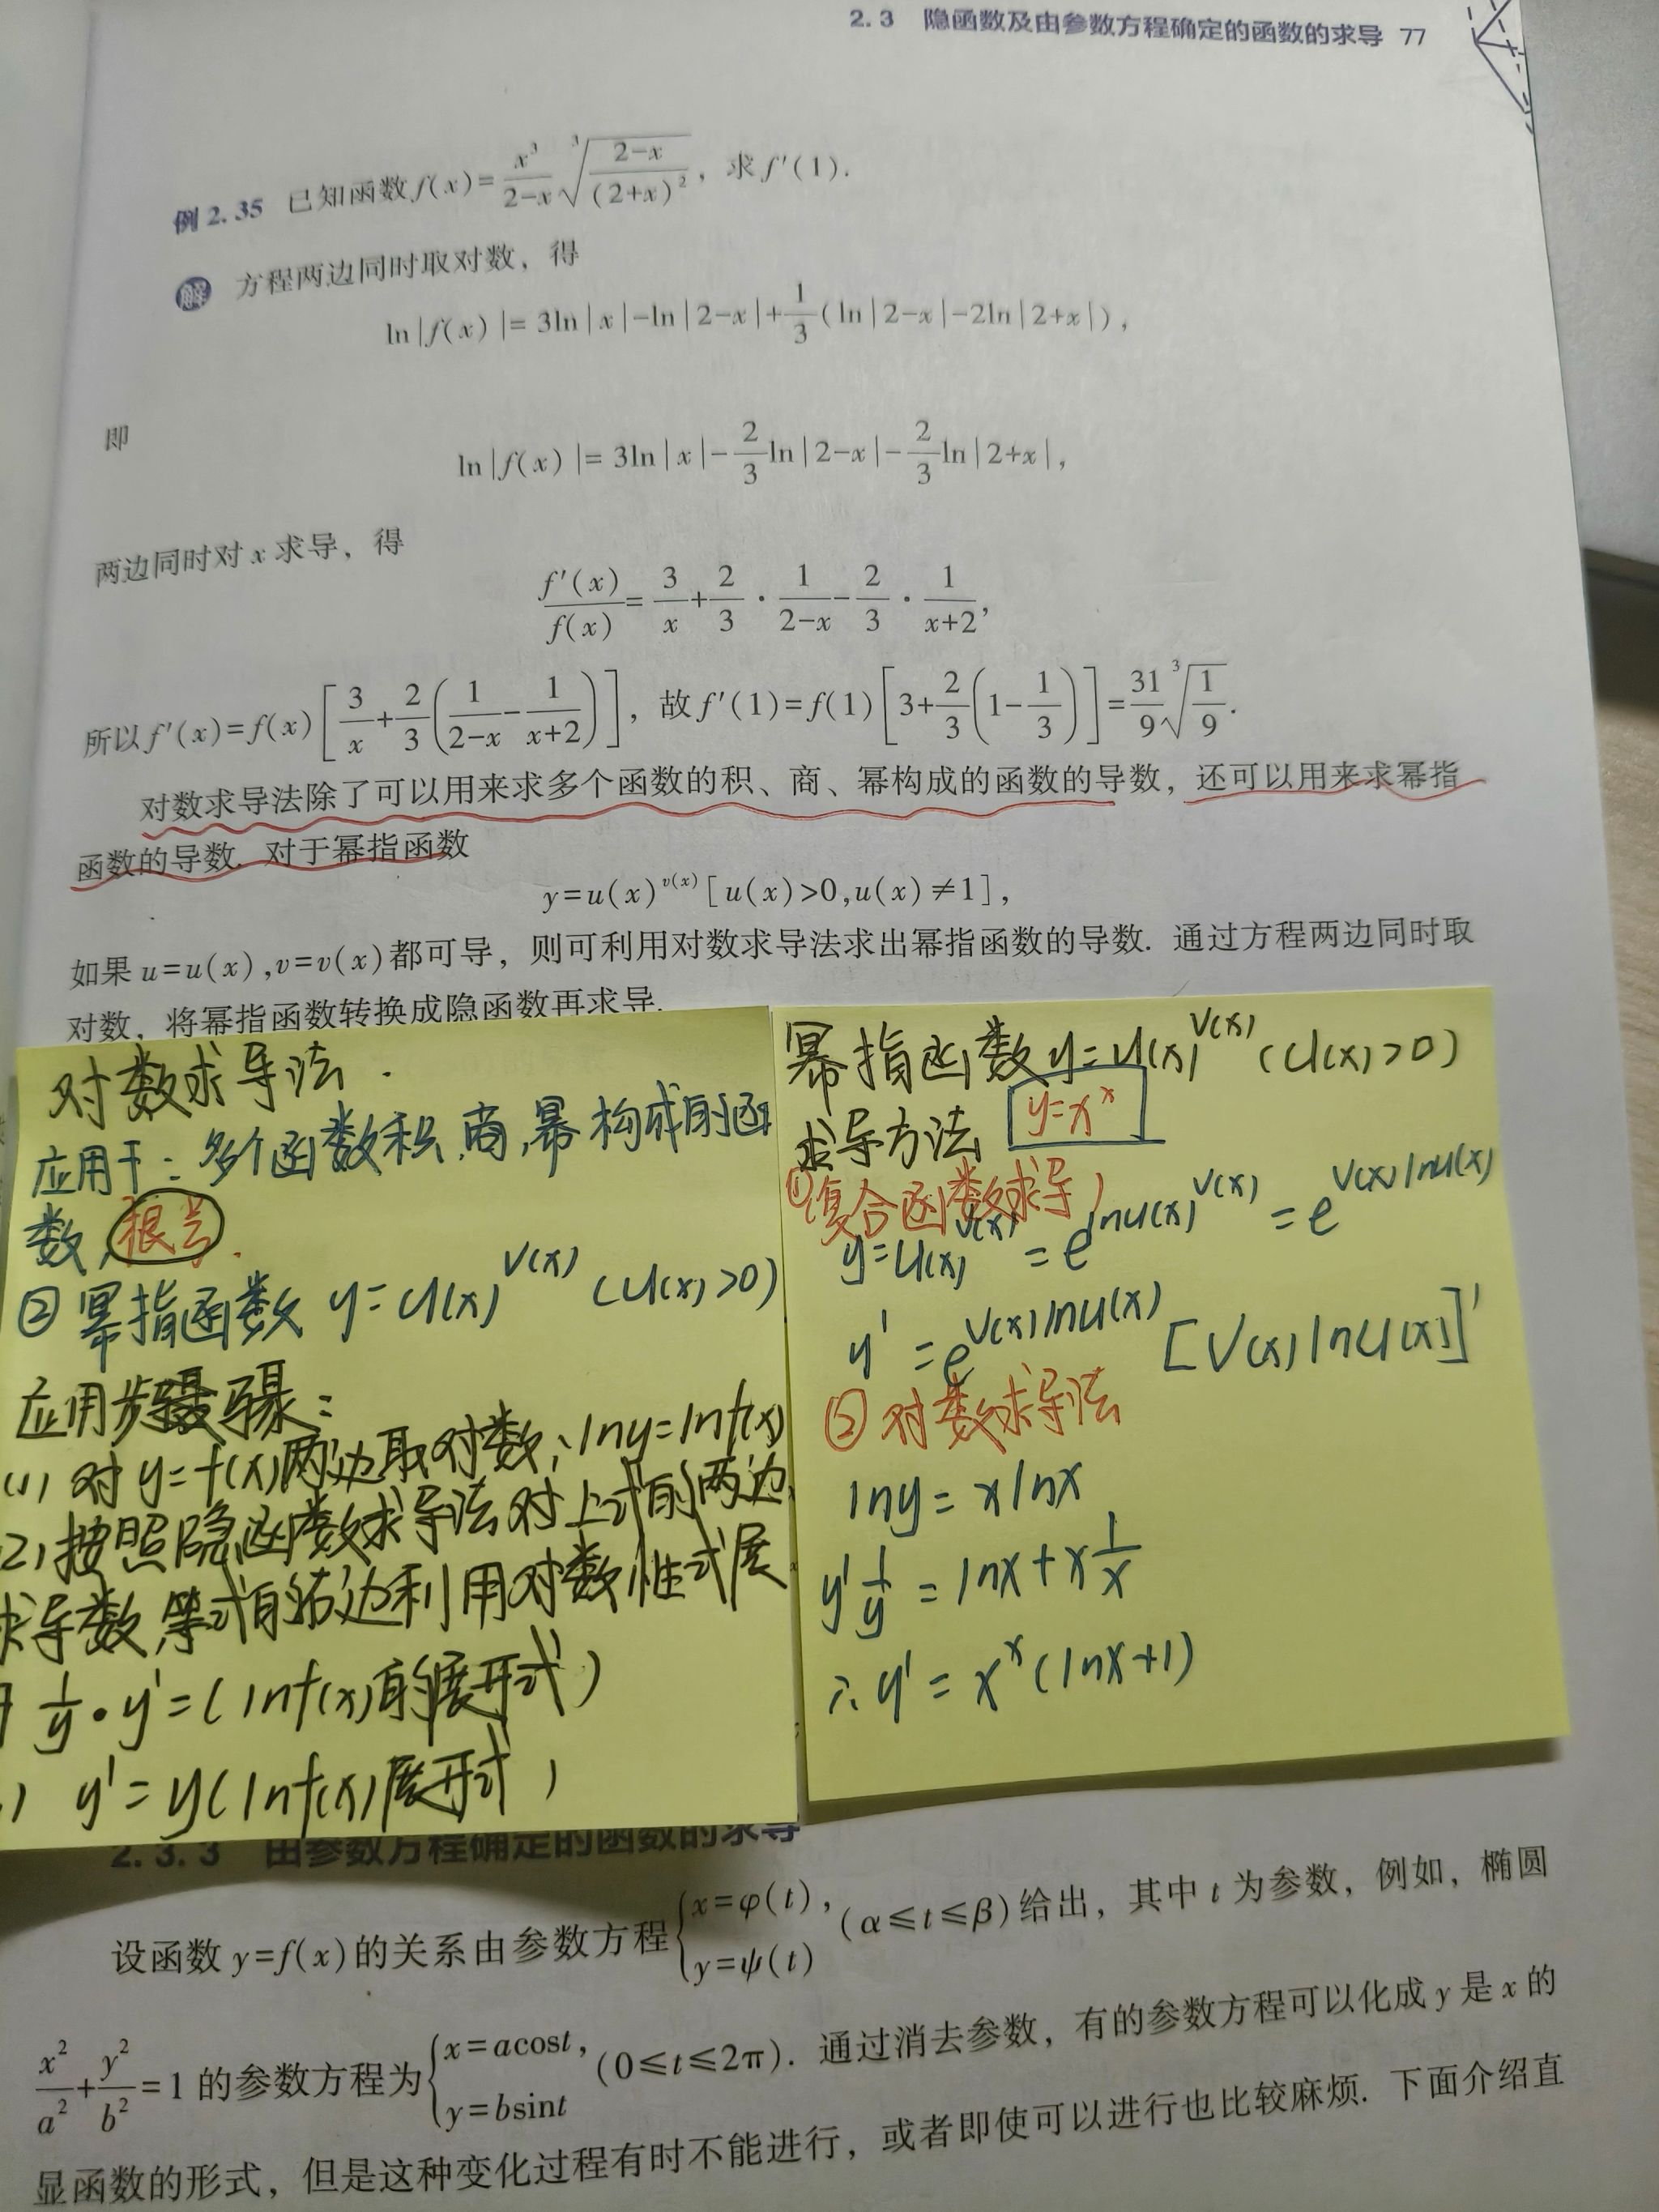 2.3 隐函数及由参数方程确定的函数的求导 77
例 2.35 已知函数 f(x)=\frac{x^3}{2-x}\sqrt[3]{\frac{2-x}{(2+x)^2}}, 求 f'(1).
解 方程两边同时取对数, 得
ln|f(x)|=3ln|x|-ln|2-x|+\frac{1}{3}(ln|2-x|-2ln|2+x|),
即
ln|f(x)|=3ln|x|-\frac{2}{3}ln|2-x|-\frac{2}{3}ln|2+x|,
两边同时对 x 求导, 得
\frac{f'(x)}{f(x)}=\frac{3}{x}+\frac{2}{3}·\frac{1}{2-x}-\frac{2}{3}·\frac{1}{x+2},
所以 f'(x)=f(x)[\frac{3}{x}+\frac{2}{3}(\frac{1}{2-x}-\frac{1}{x+2})], 故 f'(1)=f(1)[3+\frac{2}{3}(1-\frac{1}{3})]=\frac{31}{9}\sqrt[3]{\frac{1}{9}}.
对数求导法除了可以用来求多个函数的积、商、幂构成的函数的导数, 还可以用来求幂指
函数的导数. 对于幂指函数
y=u(x)^{v(x)}[u(x)>0,u(x)≠1],
如果 u=u(x),v=v(x)都可导, 则可利用对数求导法求出幂指函数的导数. 通过方程两边同时取
对数, 将幂指函数转换成隐函数再求导.
对数求导法.
应用于: 多个函数积.商,幂构成的函
数, 根号.
② 幂指函数 y=u(x)^{v(x)} (u(x)>0)
应用步骤:
(1) 对 y=f(x)两边取对数, lny=lnf(x)
2) 按照隐函数求导法对上式的两边
求导数,等式的右边利用对数性式展
\frac{1}{y}·y'=(lnf(x)的展开式)
) y'=y(lnf(x)展开式)
幂指函数 y=u(x)^{v(x)} (u(x)>0)
求导方法 y=x^x
① (复合函数求导)
y=u(x)^{v(x)}=e^{lnu(x)^{v(x)}}=e^{v(x)lnu(x)}
y'=e^{v(x)lnu(x)}[v(x)lnu(x)]'
② 对数求导法
lny=xlnx
y'\frac{1}{y}=lnx+x\frac{1}{x}
∴ y'=x^x(lnx+1)
2.3.3 由参数方程确定的函数的求导
设函数 y=f(x)的关系由参数方程{x=φ(t), y=ψ(t) (α≤t≤β)给出, 其中 t 为参数, 例如, 椭圆
\frac{x^2}{a^2}+\frac{y^2}{b^2}=1 的参数方程为{x=acost, y=bsint (0≤t≤2π). 通过消去参数, 有的参数方程可以化成 y 是 x 的
显函数的形式, 但是这种变化过程有时不能进行, 或者即使可以进行也比较麻烦. 下面介绍直